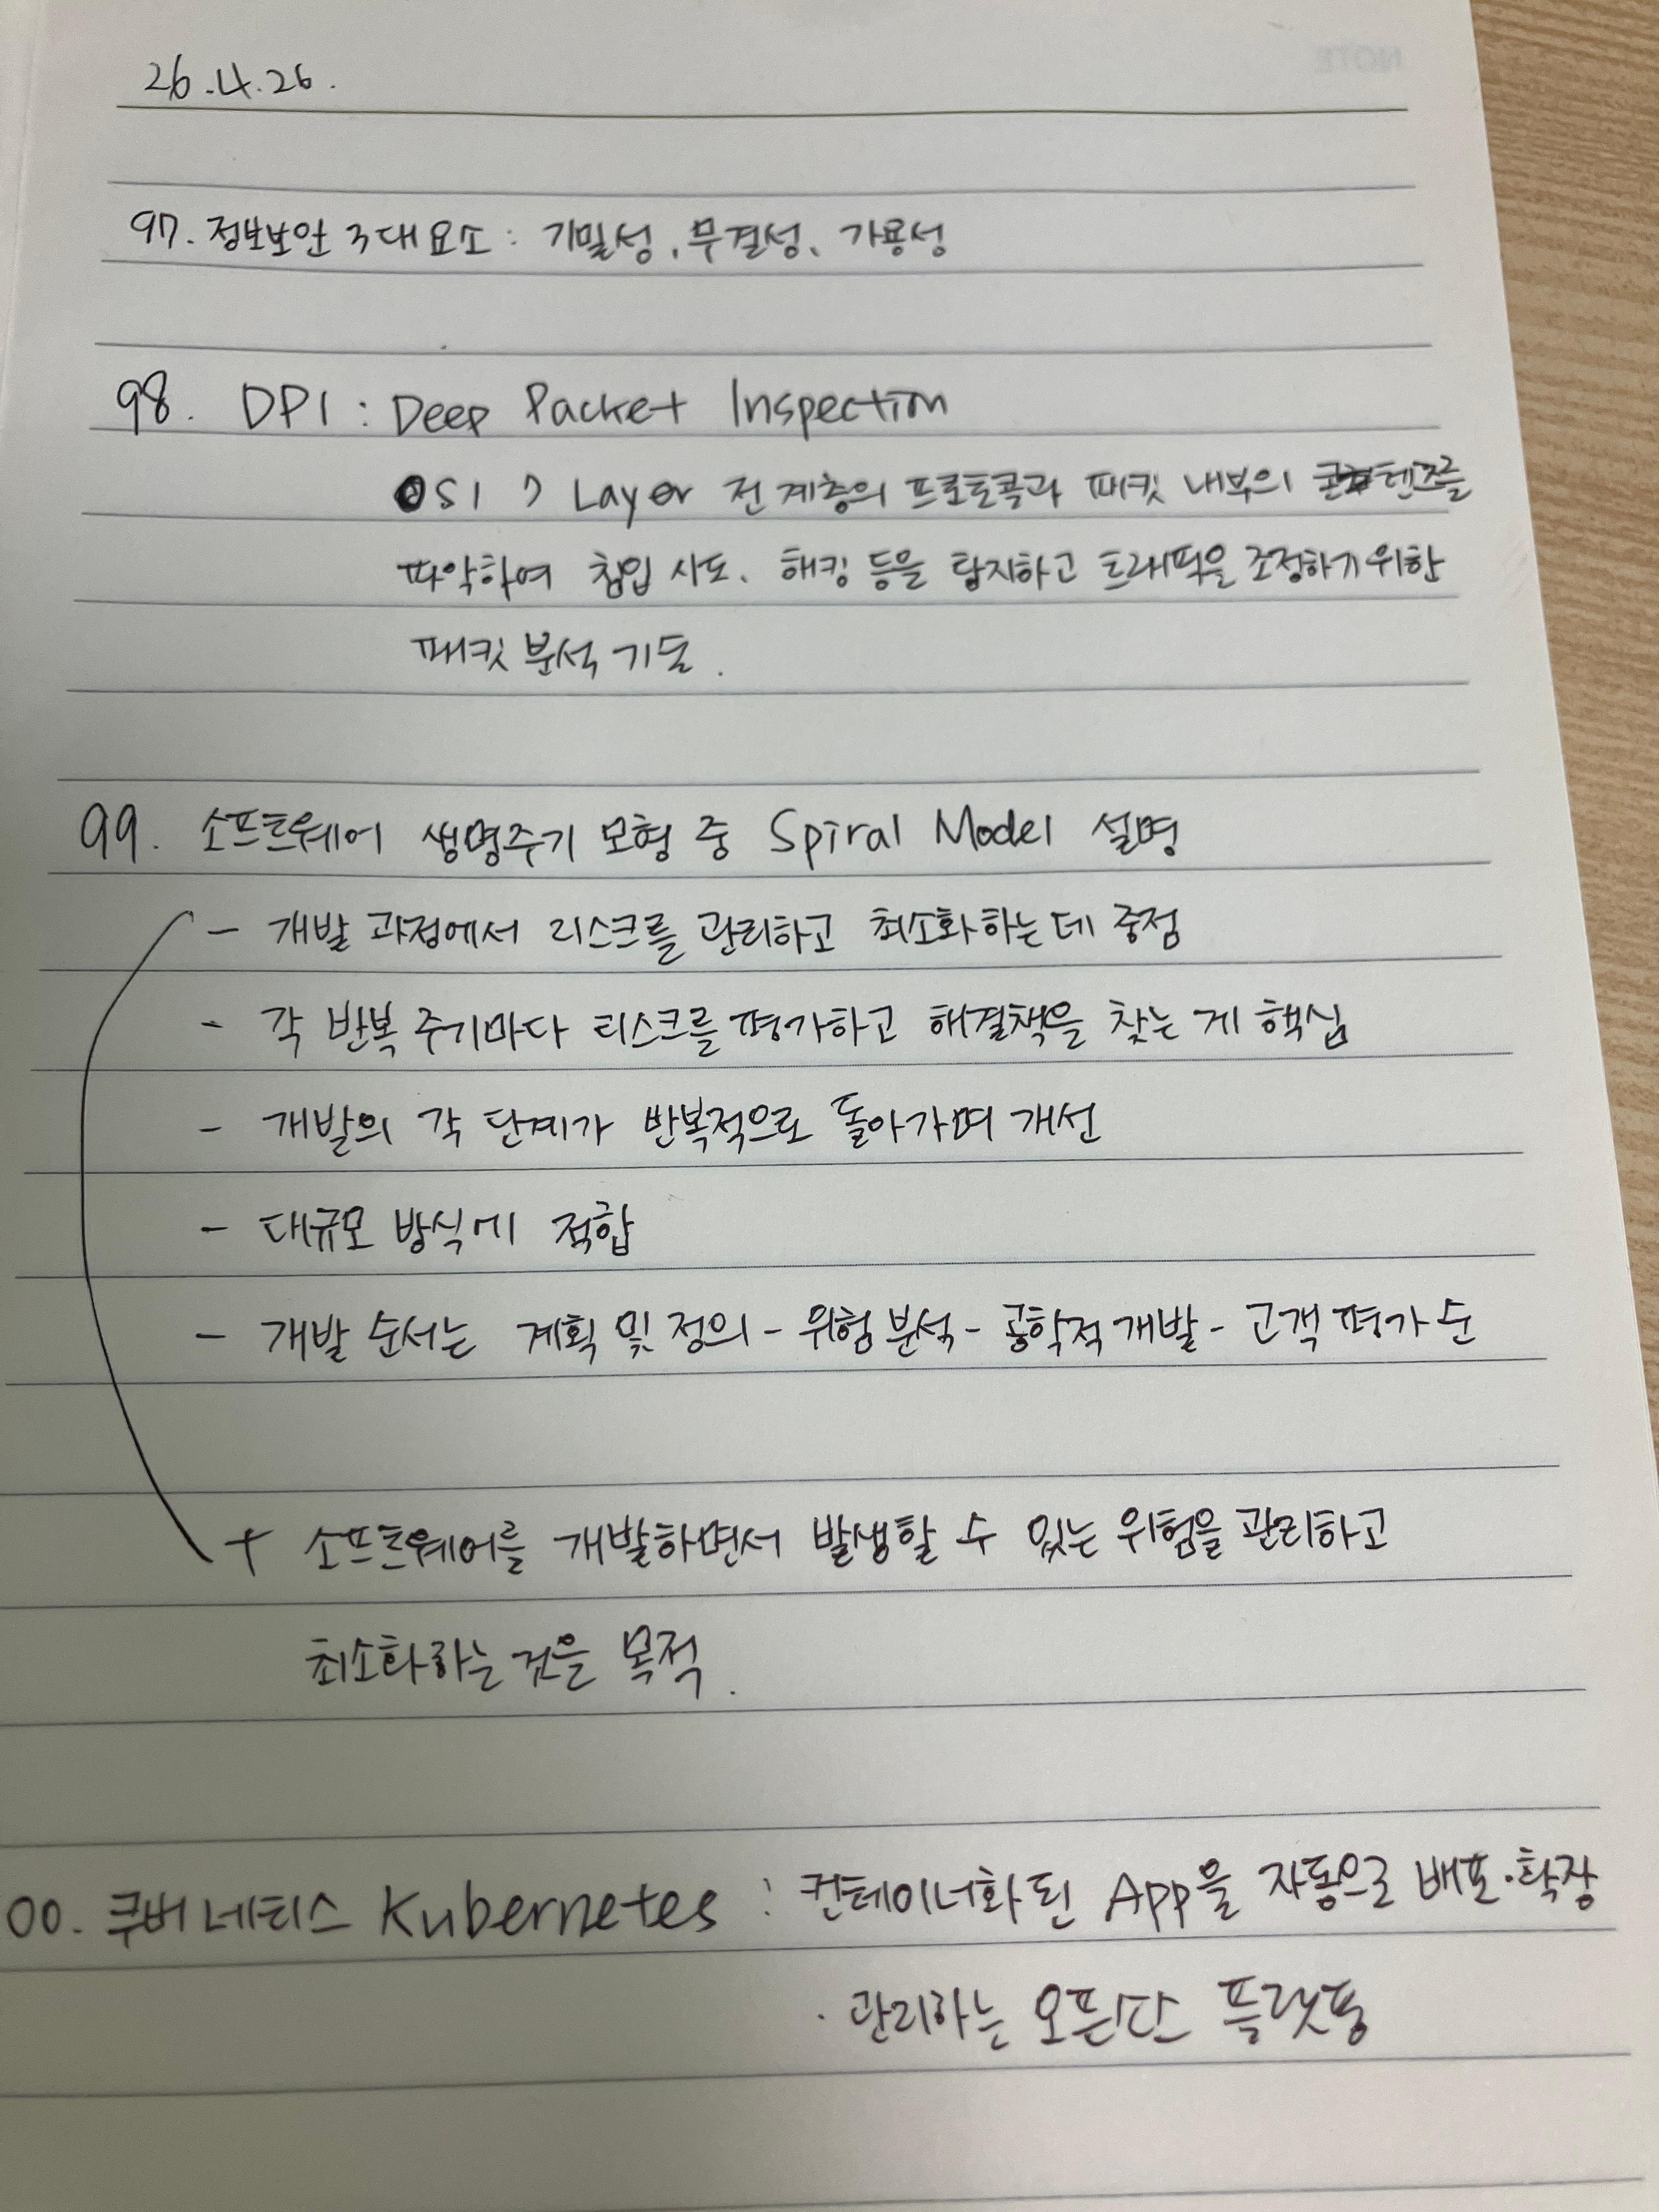 26.4.26.
97. 정보보안 3대요소 : 기밀성, 무결성, 가용성
98. DPI : Deep Packet Inspection
OSI 7 Layer 전 계층의 프로토콜과 패킷 내부의 콘텐츠를
파악하여 침입 시도, 해킹 등을 탐지하고 트래픽을 조정하기 위한
패킷 분석 기술.
99. 소프트웨어 생명주기 모형 중 Spiral Model 설명
- 개발 과정에서 리스크를 관리하고 최소화하는데 중점
- 각 반복 주기마다 리스크를 평가하고 해결책을 찾는 게 핵심
- 개발의 각 단계가 반복적으로 돌아가며 개선
- 대규모 방식에 적합
- 개발 순서는 계획 및 정의 - 위험 분석 - 공학적 개발 - 고객 평가 순
+ 소프트웨어를 개발하면서 발생할 수 있는 위험을 관리하고
최소화하는 것을 목적.
00. 쿠버네티스 Kubernetes : 컨테이너화 된 App을 자동으로 배포·확장
· 관리하는 오픈소스 플랫폼